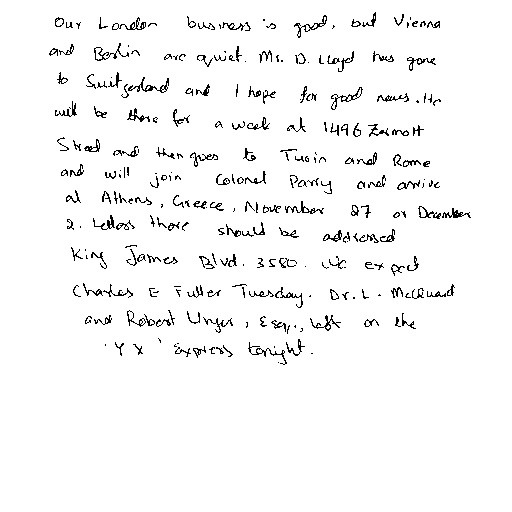 Our London business is good, but Vienna
and Berlin are quiet. Mr. D. Lloyd has gone
to Switzerland and I hope for good news. He
will be there for a week at 1496 Zermott
Street and then goes to Turin and Rome
and will join Colonel Parry and arrive
at Athens, Greece, November 27 or December
2. Letters there should be addressed
King James Blvd. 3580. We expect
Charles E Fuller Tuesday. Dr. L. McQuaid
and Robert Unger, Esq., left on the
'Y X' Express tonight.